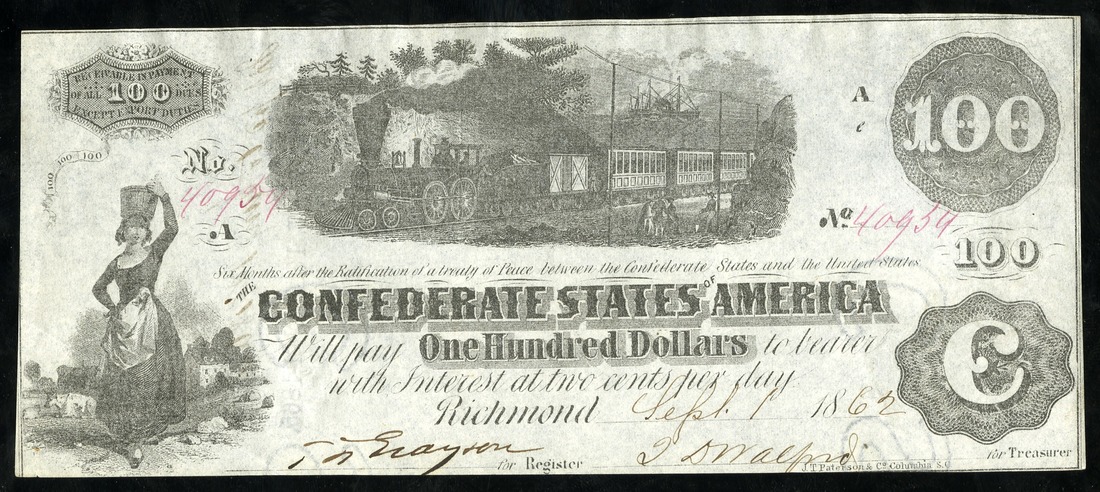 RECEIVABLE IN PAYMENT
OF ALL 100 DUES
EXCEPT EXPORT DUTIES
100 100 100
No.
40959
A
A
e
100
No. 40959
100
Six Months after the Ratification of a treaty of Peace between the Confederate States and the United States
THE CONFEDERATE STATES OF AMERICA
Will pay One Hundred Dollars to bearer
with Interest at two cents per day.
Richmond Sept. 1 1862
C
Grayson
for Register
for Treasurer
J.T. Paterson & Co. Columbia S.C